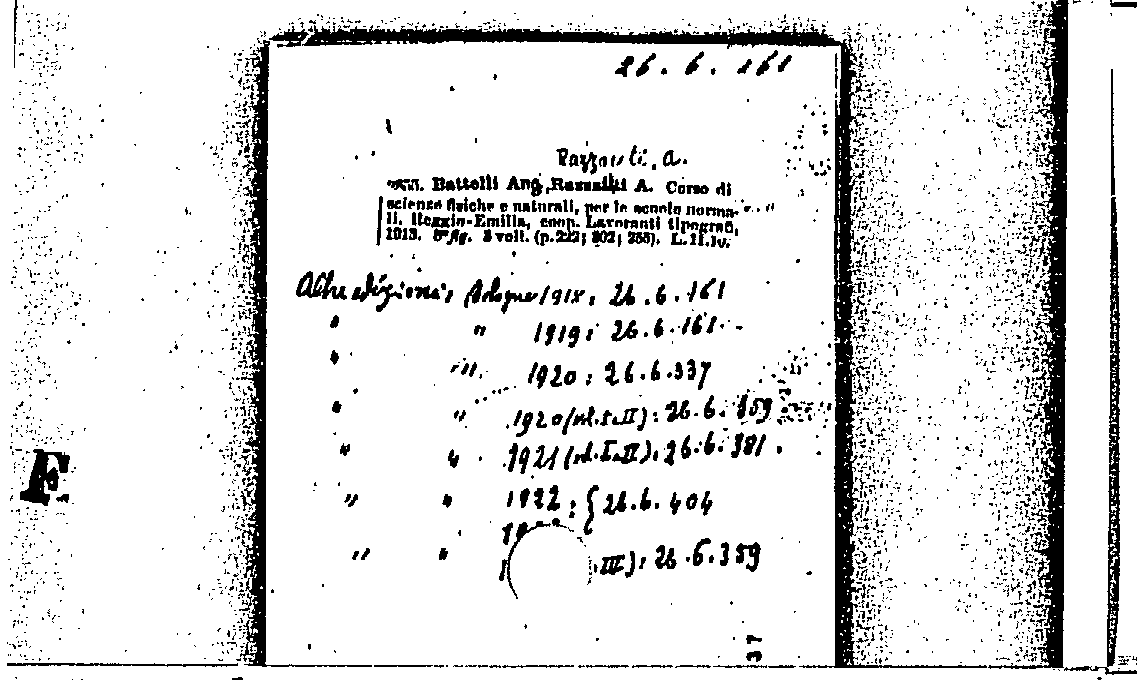 26.6.161
Razzauti, A.
Battelli Ang., Razzauti A. Corso di
scienze fisiche e naturali, per le scuole norma-
li. Reggio-Emilia, coop. Lavoranti tipografi,
1913. 8° fig. 3 voll. (p. 222; 302; 255). L.
Altre edizioni: Bologna 1918: 26.6.161
" " 1919: 26.6.161
" " 1920: 26.6.337
" " 1920 (vol. I-II): 26.6.359
" " 1921 (vol. I-II): 26.6.381.
" " 1922: { 26.6.404
" " III): 26.6.359
F
37